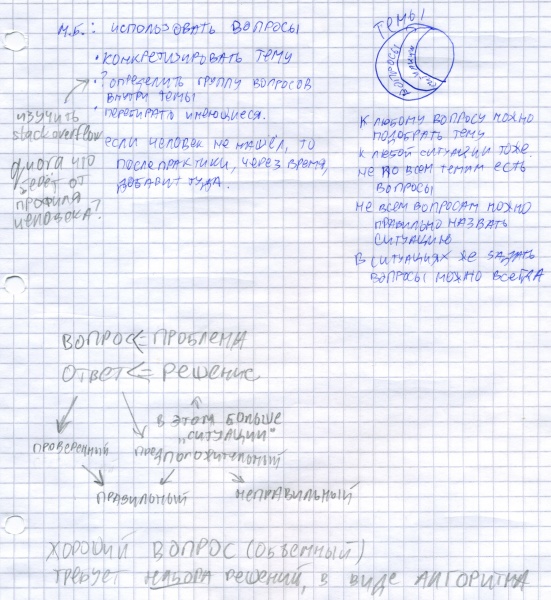 М.Б.: ИСПОЛЬЗОВАТЬ ВОПРОСЫ
• КОНКРЕТИЗИРОВАТЬ ТЕМУ
• ? ОПРЕДЕЛИТЬ ГРУППУ ВОПРОСОВ
ВНУТРИ ТЕМЫ
• ПЕРЕБИРАТЬ ИМЕЮЩИЕСЯ.
ЕСЛИ ЧЕЛОВЕК НЕ НАШЁЛ, ТО
ПОСЛЕ ПРАКТИКИ, ЧЕРЕЗ ВРЕМЯ,
ДОБАВИТ ТУДА.
ИЗУЧИТЬ
stackoverflow
ЧТО
ОТ
ПРОФИЛЯ
ЧЕЛОВЕКА?
ТЕМЫ
ВОПРОСЫ
К ЛЮБОМУ ВОПРОСУ МОЖНО
ПОДОБРАТЬ ТЕМУ
К ЛЮБОЙ СИТУАЦИИ ТОЖЕ.
НЕ ПО ВСЕМ ТЕМАМ ЕСТЬ
ВОПРОСЫ
НЕ ВСЕМ ВОПРОСАМ МОЖНО
ПРАВИЛЬНО НАЗВАТЬ
СИТУАЦИЮ
В СИТУАЦИЯХ ЖЕ ЗАДАТЬ
ВОПРОСЫ МОЖНО ВСЕГДА
ВОПРОС <= ПРОБЛЕМА
ОТВЕТ <= РЕШЕНИЕ
В ЭТОМ БОЛЬШЕ
"СИТУАЦИИ"
ПРОВЕРЕННЫЙ
ПРЕДПОЛОЖИТЕЛЬНЫЙ
ПРАВИЛЬНЫЙ НЕПРАВИЛЬНЫЙ
ХОРОШИЙ ВОПРОС (ОБЪЕМНЫЙ)
ТРЕБУЕТ НАБОРА РЕШЕНИЙ, В ВИДЕ АЛГОРИТМА